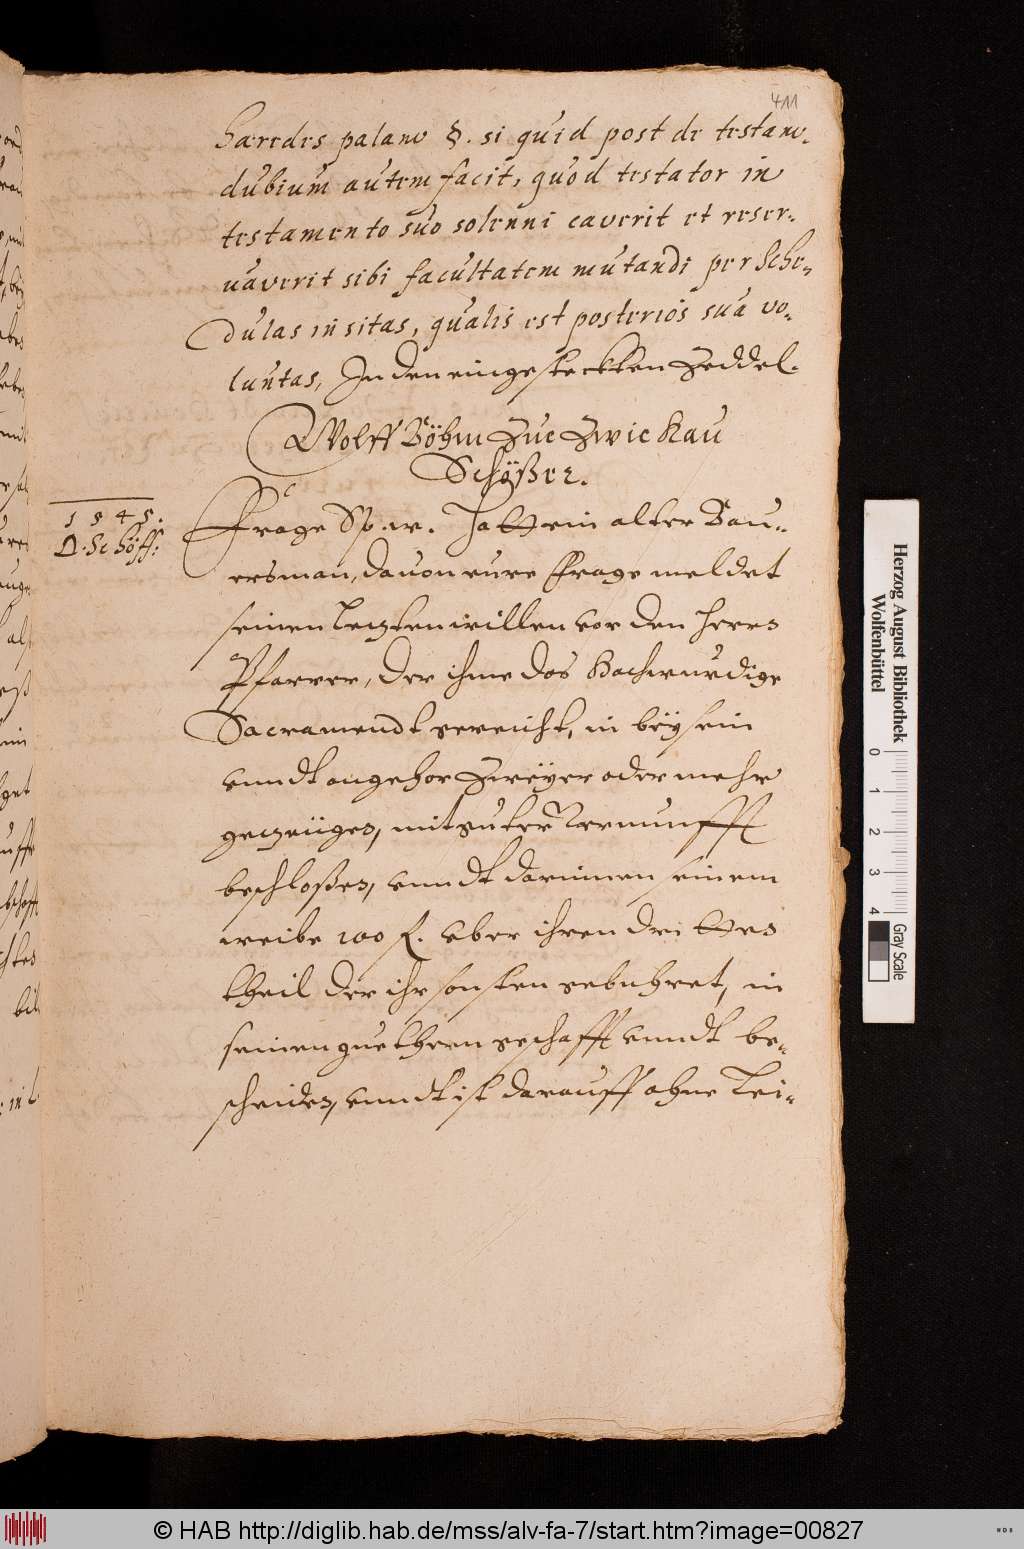 411
haeredes palam §. si quid post de testam.
dubium autem facit, quod testator in
testamento suo solenni caverit et reser-
uaverit sibi facultatem mutandi per Sche-
dulas insitas, qualis est posterios sua vo-
luntas, In den eingesteckten Zeddel.
Wolff Böhm zue Zwickau
Schößer.
1545.
D. Schöff:
Frage Sp. w. Hatt ein alter Bau-
ersman, dauon eure Frage meldet
seinen letzten willen vor den Herrn
Pfarrer, der ihme das Hochwurdige
Sacramendt gereicht, in beÿsein
vnndt angehor Zweÿer oder mehr
getzeügen, mit guter Vernunfft
beschloßen, vnndt darinnen seinem
weibe 100 f. vber ihren dritten
theil der ihr sonsten gebuhret, in
seinen guethern geschafft vnndt be-
scheiden, vnndt ist darauff ohne lei-
Herzog August Bibliothek
Wolfenbüttel
0 1 2 3 4
Gray Scale
© HAB http://diglib.hab.de/mss/alv-fa-7/start.htm?image=00827